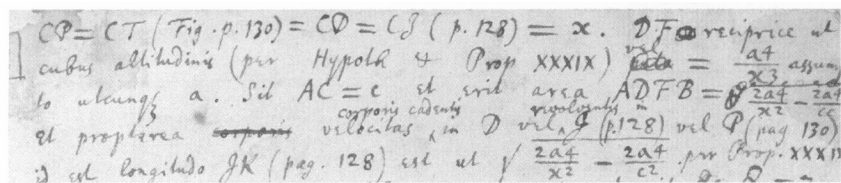 CP = CT (Fig. p. 130) = CD = CJ (p. 128) = x. DF reciprice ut
cubus altitudinis (per Hypoth & Prop XXXIX) vel = a4/x3 assum
to utcunqʒ a. Sit AC = c et erit area ADFB = 2a4/x2 - 2a4/cc
et propterea corporis velocitas corporis cadentis in D vel J revolventis in (p. 128) vel P (pag 130)
id est longitudo JK (pag. 128) est ut √ 2a4/x2 - 2a4/c2 per Prop. XXXIX